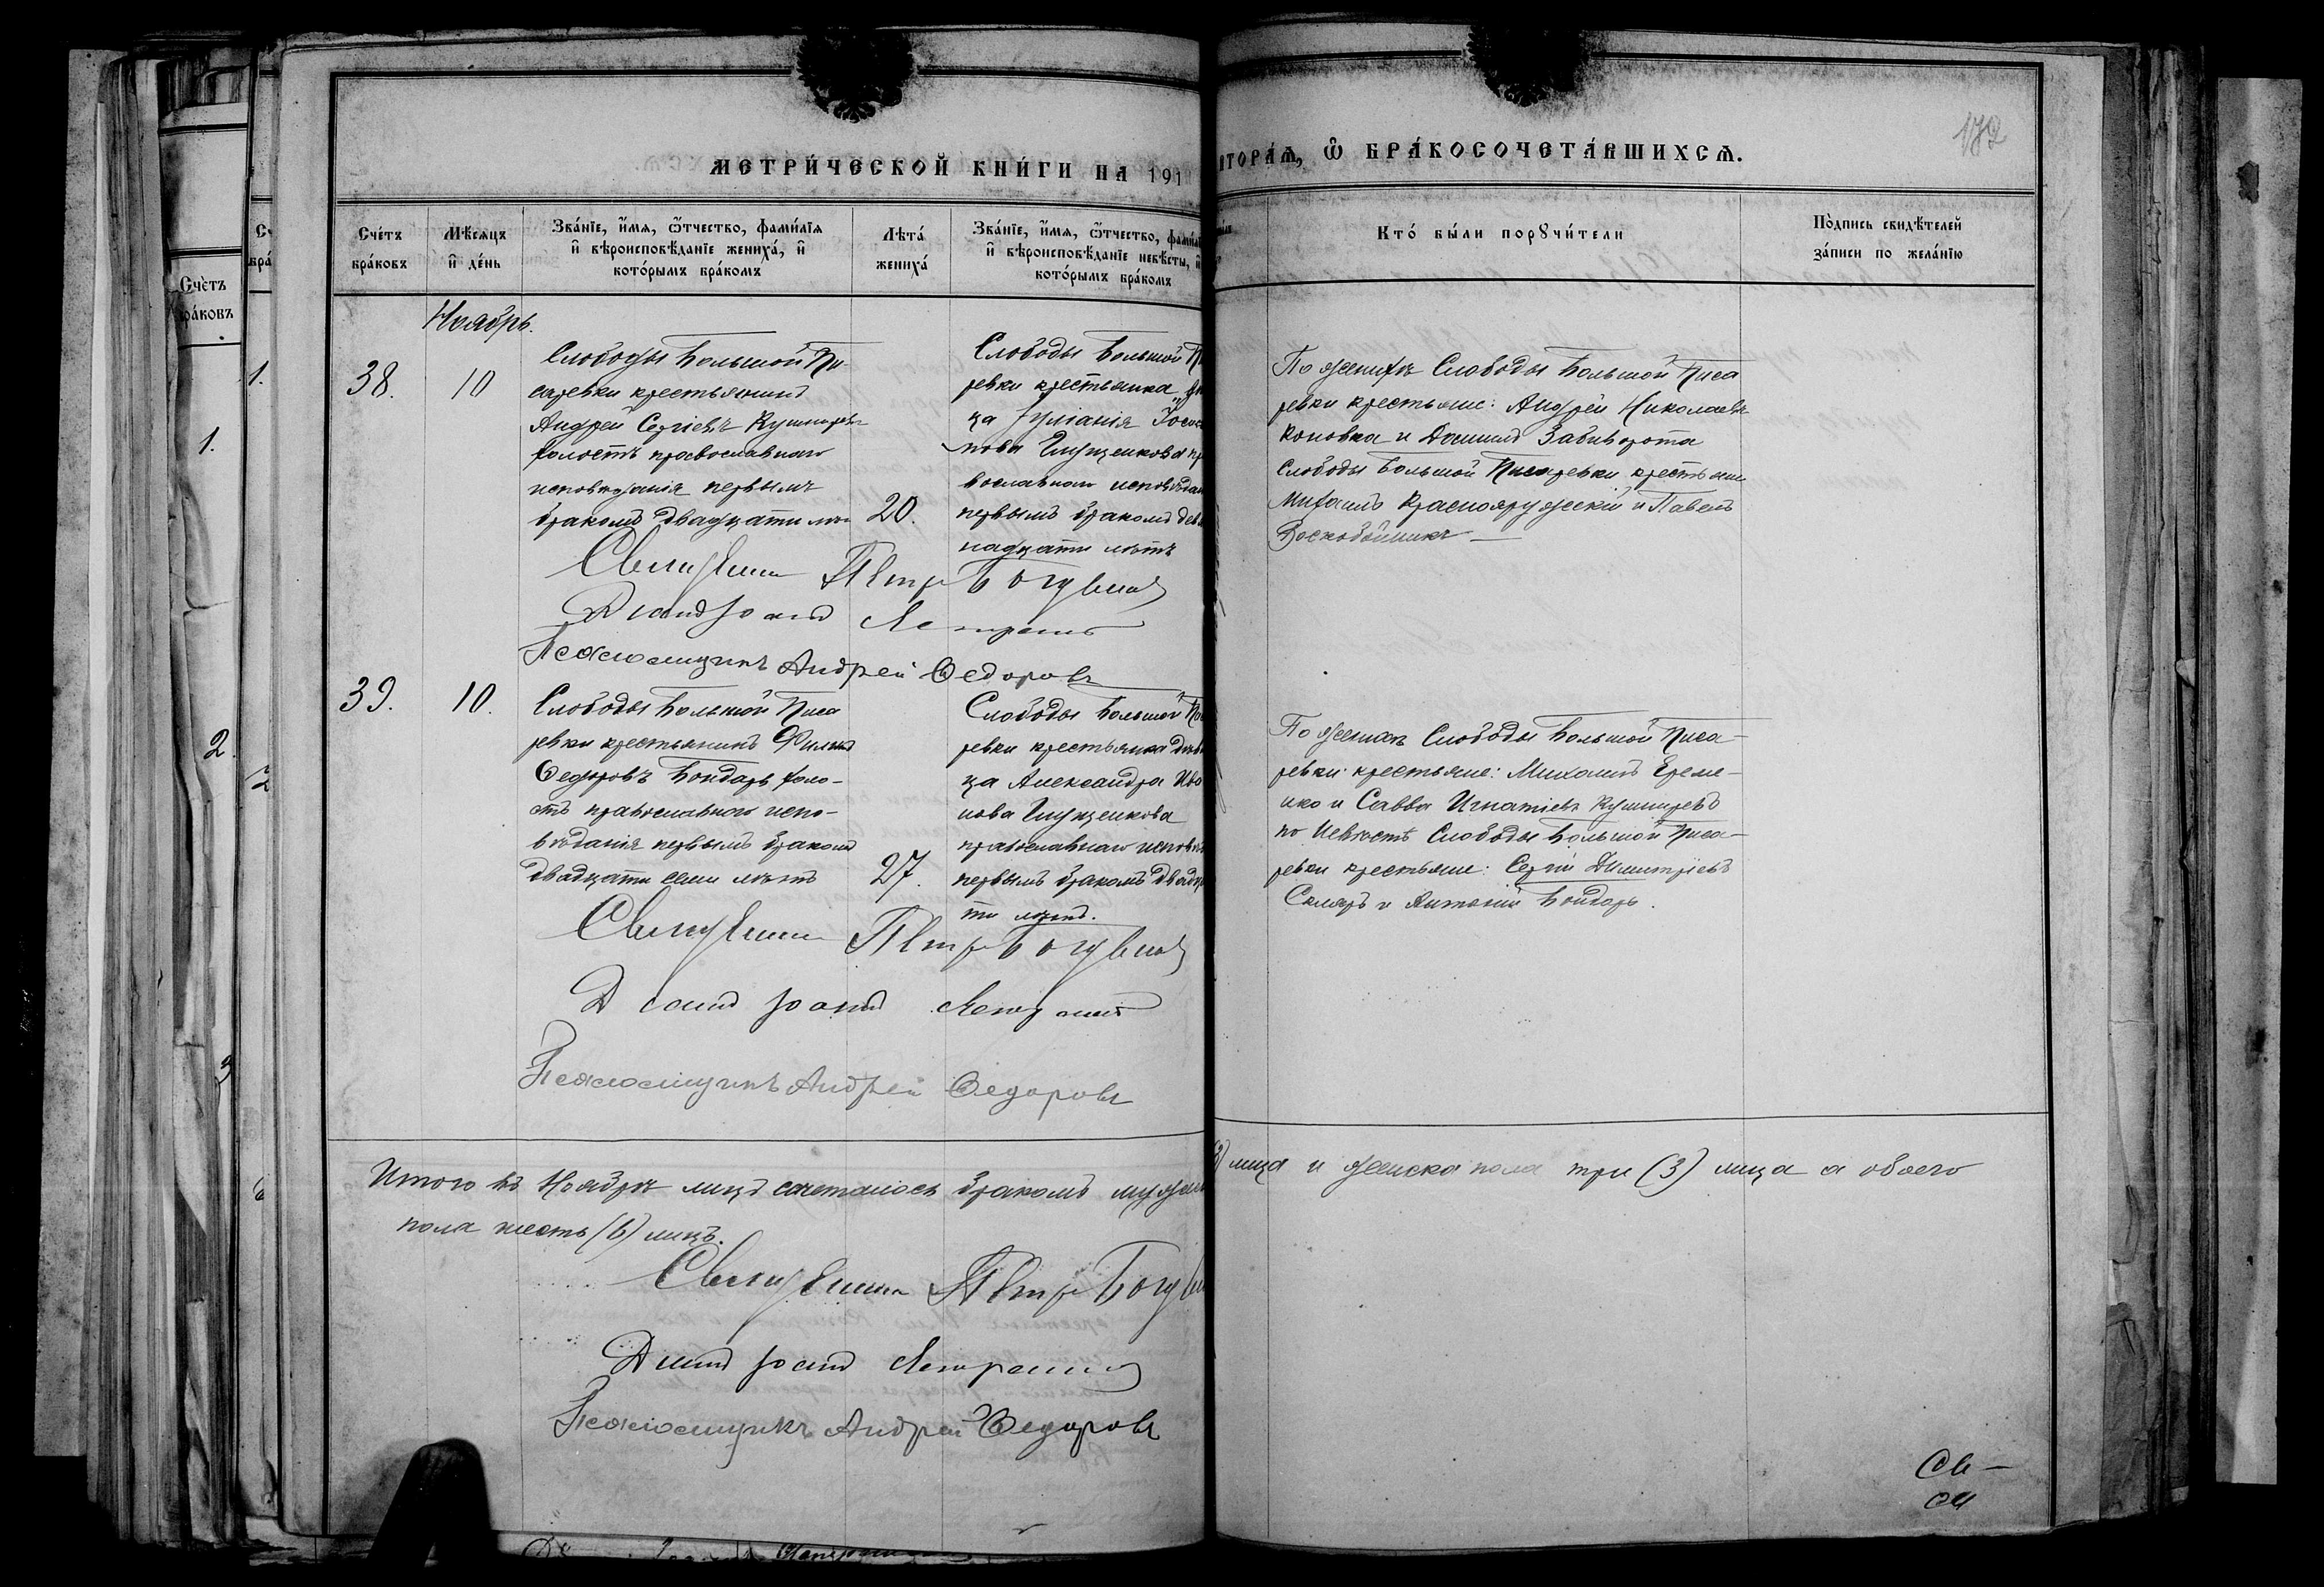 МЕТРИ́ЧЕСКОЙ КНИ́ГИ НА 191
ВТОРА́Ѧ, Ѽ БРА́КОСОЧЕТА́ВШИХСѦ.
172
Сче́тъ бра́ковъ
Мѣ́сяцъ и де́нь
Зва́нїе, и́мѧ, ѻ҆́тчество, фами́лїѧ
и҆ вѣроисповѣ́данїе жениха́, и҆
кото́рымъ бра́комъ
Лѣта́ жениха́
Зва́нїе, и́мѧ, ѻ҆́тчество, фами́л
и҆ вѣроисповѣ́данїе невѣ́сты, и҆
кото́рымъ бра́комъ
Кто́ бы́ли порꙋчи́тели
По́дпись свидѣ́телей
за́писи по жела́нїю
Ноябрь.
38.
10
Слободы Большой Пи-
саревки крестьянинъ
Андрей Сергіевъ Кушнаревъ
холостъ православнаго
исповѣданія первымъ
бракомъ двадцати лѣтъ
20.
Слободы Большой П
ревки крестьянка дѣ
ца Іуліанія Іоси
нова Глущенкова пр
вославнаго исповѣдан
первымъ бракомъ дев
надцати лѣтъ
По женихѣ Слободы Большой Писа
ревки крестьяне: Андрей Николаевъ
Коновка и Даниилъ Забиворота
Слободы Большой Писаревки крестьяне
Михаилъ Краснояружскій и Павелъ
Воскобойникъ
Священникъ Петръ
Діаконъ Іоаннъ
Псаломщикъ Андрей Ѳедоровъ
39.
10.
Слободы Большой Писа
ревки крестьянинъ Филиппъ
Ѳедоровъ Бондарь холо-
стъ православнаго испо-
вѣданія первымъ бракомъ
двадцати семи лѣтъ
27.
Слободы Большой Пи
ревки крестьянка дѣви
ца Александра Ива
нова Глущенкова
православнаго исповѣ
первымъ бракомъ двадца
ти лѣтъ.
По женихѣ Слободы Большой Писа-
ревки крестьяне: Михаилъ Ереме-
нко и Савва Игнатіевъ Кушнаревъ
по Невѣстѣ Слободы Большой Писа-
ревки крестьяне: Сергій Димитріевъ
Скляръ и Антоній Бондарь.
Священникъ Петръ
Діаконъ Іоаннъ
Псаломщикъ Андрей Ѳедоровъ
Итого въ Ноябрѣ лицъ сочеталось бракомъ мужеск
3) лица и женска пола три (3) лица а обоего
пола шесть (6) лицъ.
Священникъ Петръ
Діаконъ Іоаннъ
Псаломщикъ Андрей Ѳедоровъ
Св-